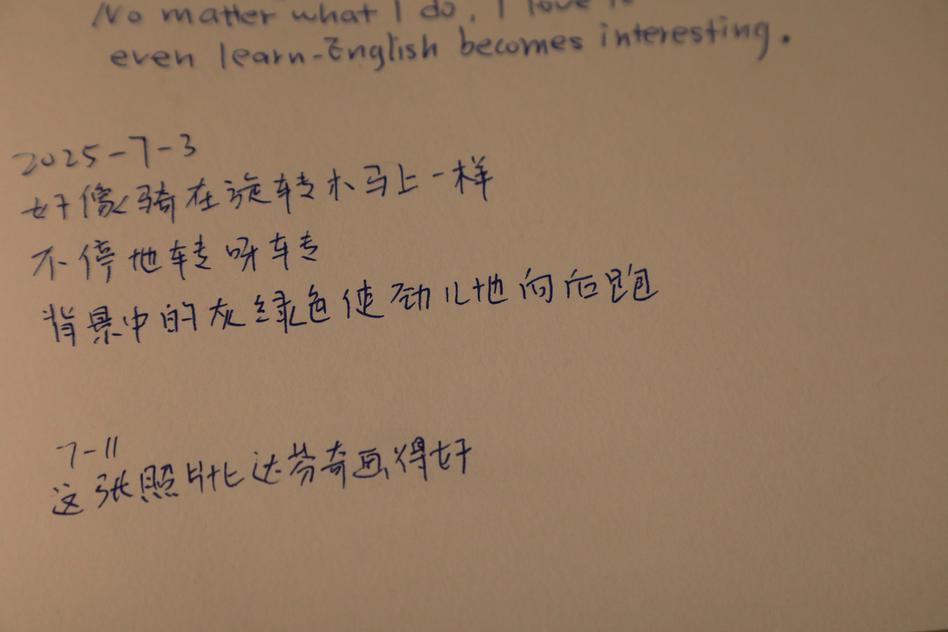 No matter what I do, I love
even learn-English becomes interesting.
2025-7-3
好像骑在旋转木马上一样
不停地转呀转
背景中的灰绿色使劲儿地向后跑
7-11
这张照片比达芬奇画得好